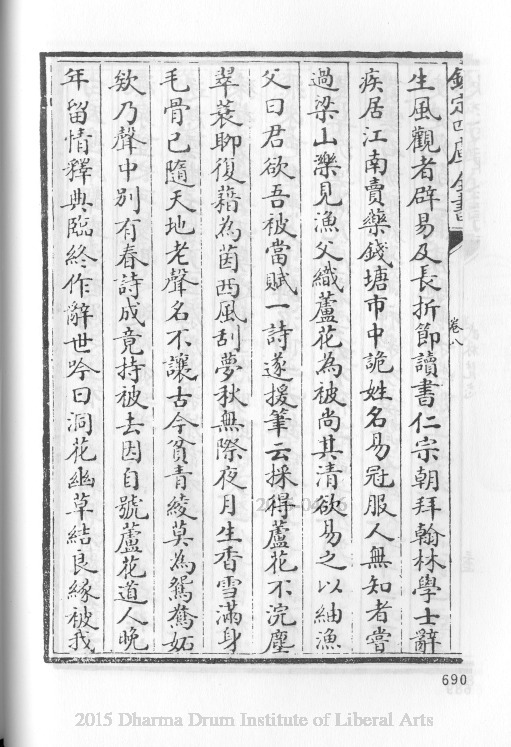 欽定四庫全書
卷八
生風觀者辟易及長折節讀書仁宗朝拜翰林學士辭
疾居江南賣藥錢塘市中詭姓名易冠服人無知者嘗
過梁山濼見漁父織蘆花為被尚其清欲易之以紬漁
父曰君欲吾被當賦一詩遂援筆云採得蘆花不涴塵
翠蓑聊復藉為茵西風刮夢秋無際夜月生香雪滿身
毛骨已隨天地老聲名不讓古今貧青綾莫為鴛鴦妬
欸乃聲中別有春詩成竟持被去因自號蘆花道人晚
年留情釋典臨終作辭世吟曰洞花幽草結良緣被我
690
2015 Dharma Drum Institute of Liberal Arts